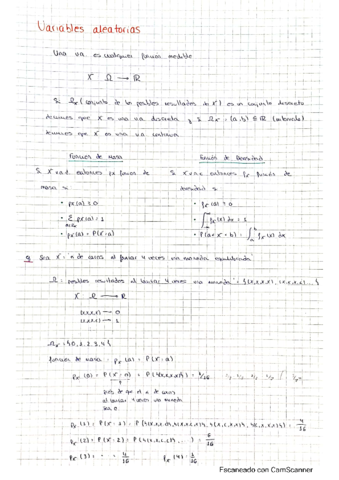 Variables aleatorias
Una va es cualquier función medible
X Ω → ℝ
Si Ωx (conjunto de los posibles resultados de X) es un conjunto discreto
decimos que X es una va discreta y si Ωx = (a,b) ⊆ ℝ (intervalo)
decimos que X es una va continua
Función de masa
Función de Densidad
Si X v.a.d. entonces px función de
masa si
• px(a) ≥ 0
• Σ px(a) = 1
a∈Ωx
• px(a) = P(X=a)
Si X v.a.c entonces fx función de
densidad si
• fx(a) ≥ 0
• ∫ fx(x) dx = 1
• P(a<X<b) = ∫ fx(x) dx
Sea X = n de caras al lanzar 4 veces una moneda equilibrada
Ω = posibles resultados al lanzar 4 veces una moneda
X Ω → ℝ
→ 0
→ 1
Ωx = {0,1,2,3,4}
función de masa = px(a) = P(X=a)
px(0) = P(X=0) = = 1/16
al lanzar 4 veces una moneda
sea 0
px(1) = P(X=1) = = 4/16
px(2) = P(X=2) = = 6/16
px(3) = = 4/16 px(4) = 1/16
Escaneado con CamScanner